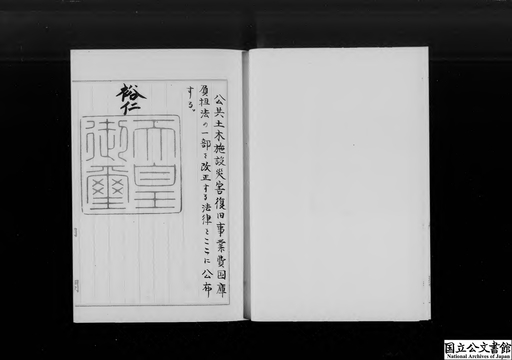 公共土木施設災害復旧事業費国庫
負担法の一部を改正する法律をここに公布
する。
裕仁
天皇
御璽
国立公文書館
National Archives of Japan